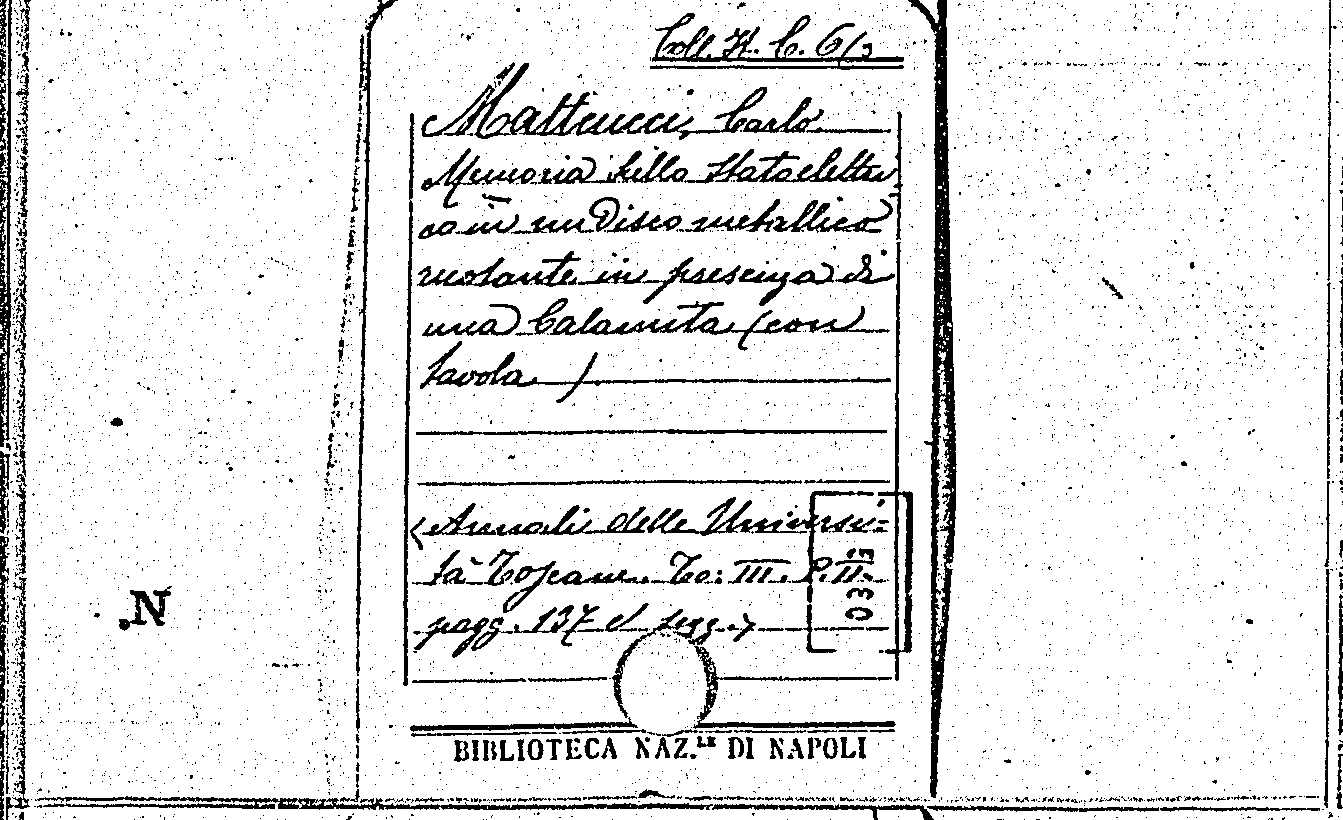 Coll. It. C. 6/3
Matteucci, Carlo.
Memoria sullo Stato elettri-
co in un Disco metallico
ruotante in presenza di
una Calamita (con
tavola)
(Annali delle Universi=
tà Toscane. To: III. P. II.
pagg. 137 e segg.)
N.
BIBLIOTECA NAZ.LE DI NAPOLI